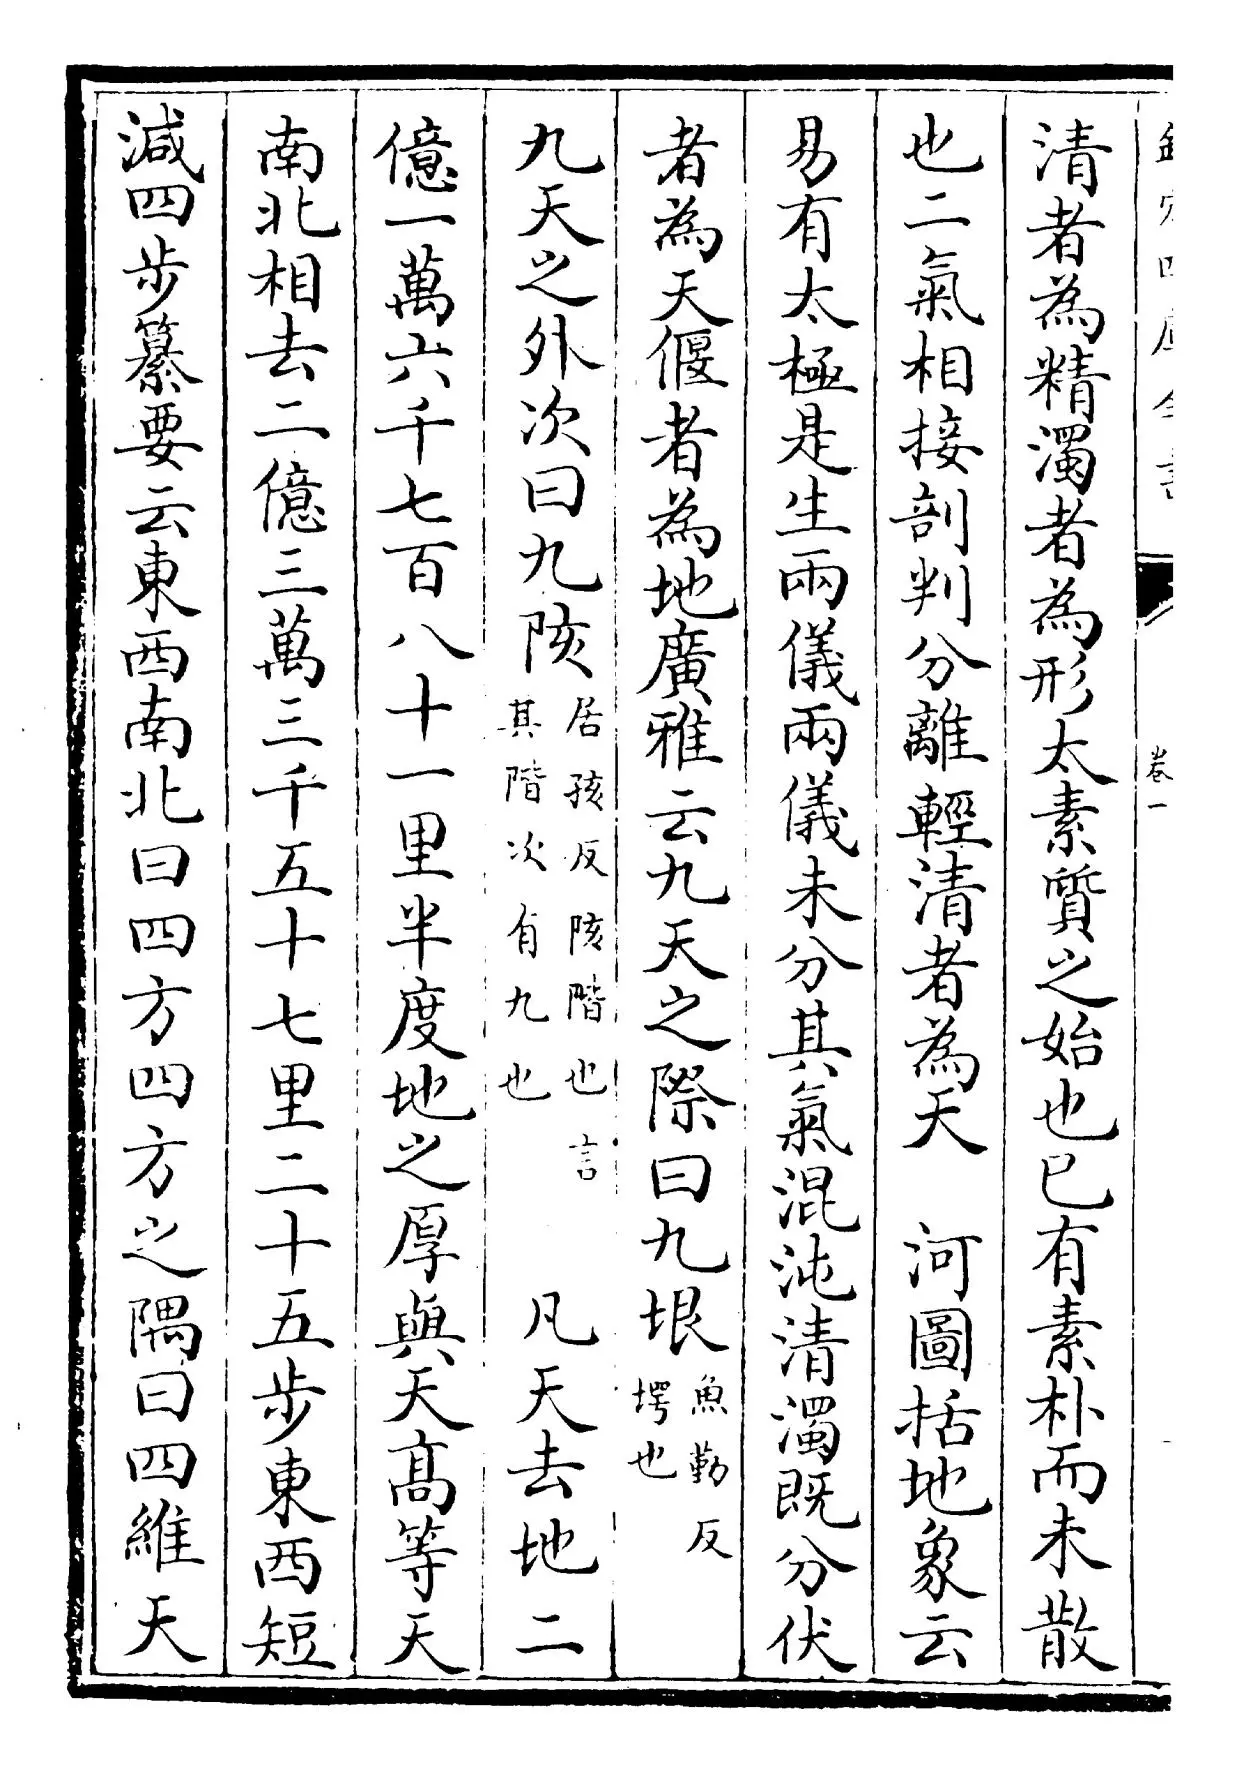 欽定四庫全書
卷一
清者為精濁者為形太素質之始也已有素朴而未散
也二氣相接剖判分離輕清者為天 河圖括地象云
易有太極是生兩儀兩儀未分其氣混沌清濁既分伏
者為天偃者為地廣雅云九天之際曰九垠魚勤反堮也
九天之外次曰九陔居孩反陔階也言其階次有九也 凡天去地二
億一萬六千七百八十一里半度地之厚與天高等天
南北相去二億三萬三千五十七里二十五步東西短
減四步纂要云東西南北曰四方四方之隅曰四維天